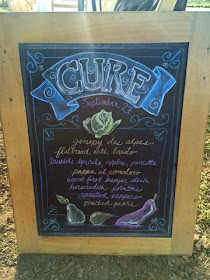 CURE
September 22
genepy des alpes
flatbread with lardo
brussels sprouts, apples, pancetta
pappa al pomodoro
wood fired hanger steak
horseradish, potatoes
roasted peppers
poached pears